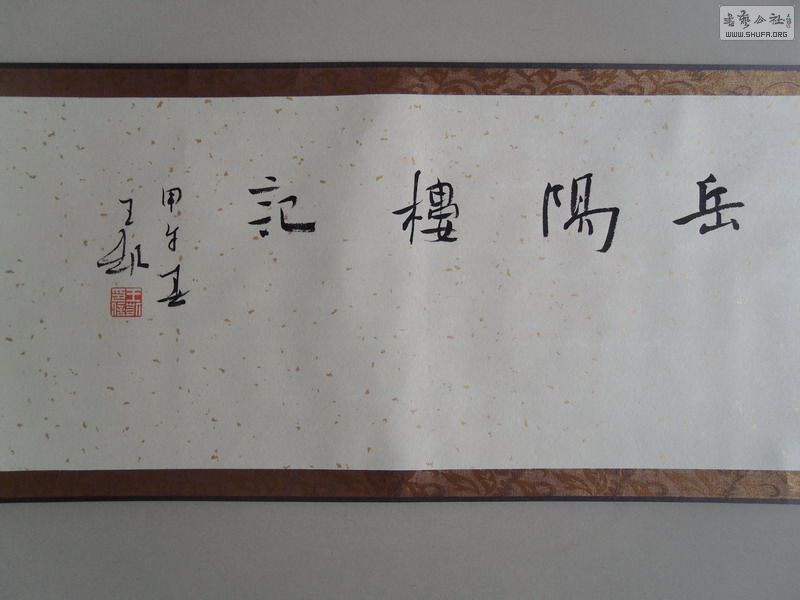 岳陽樓記
甲午春
王
書藝公社
WWW.SHUFA.ORG